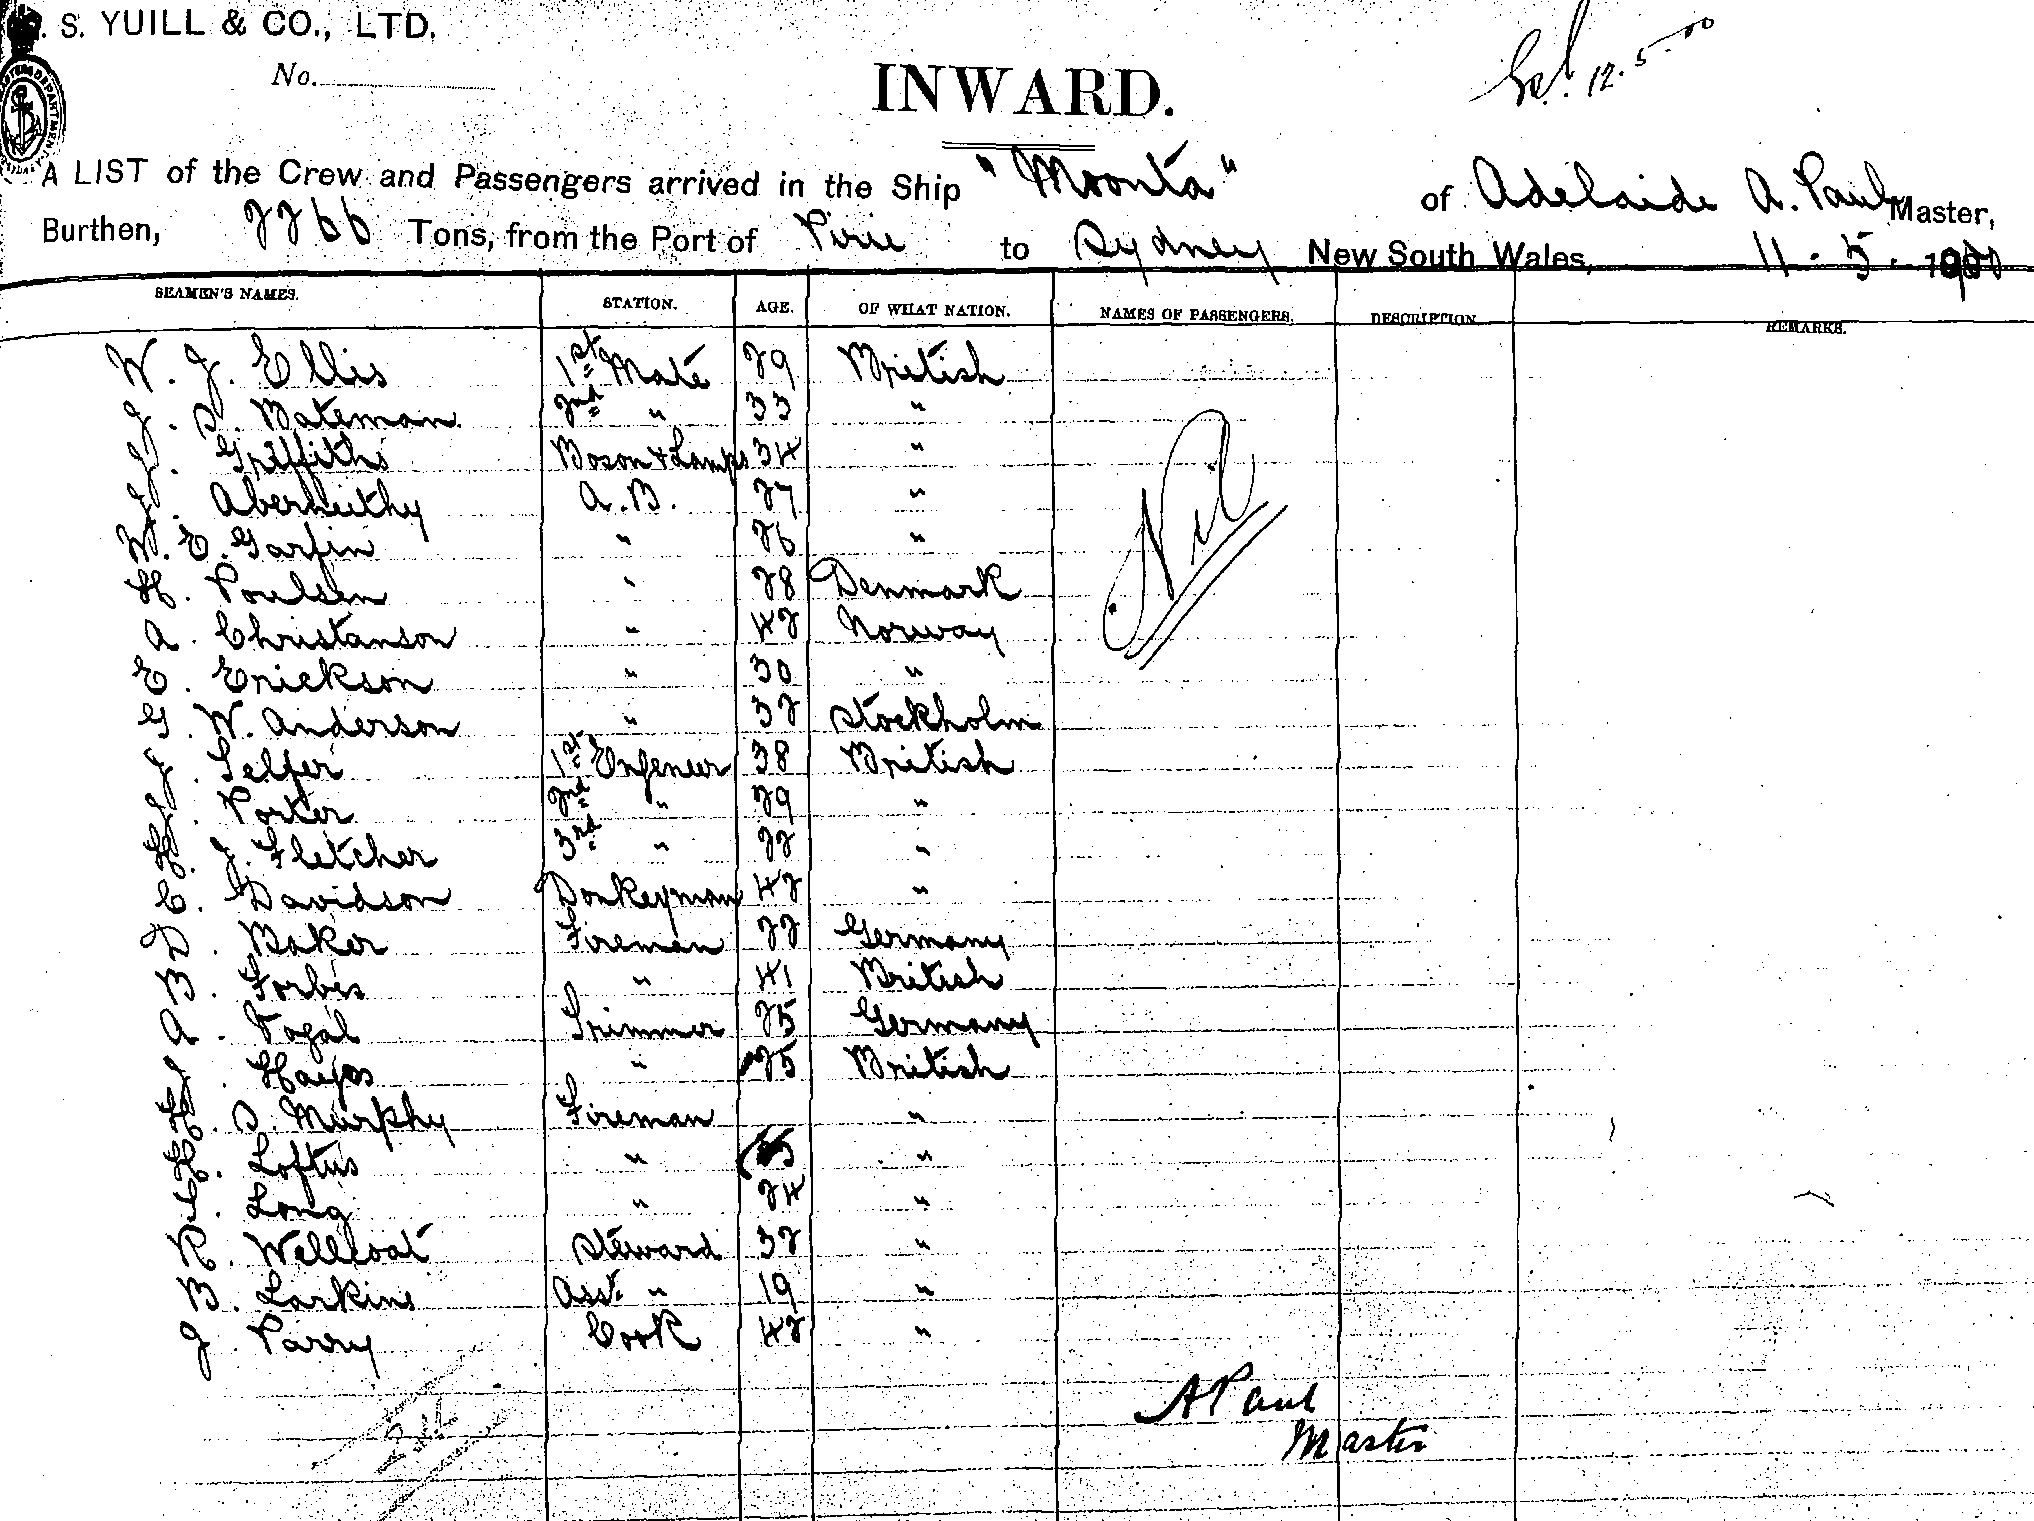 . S. YUILL & CO., LTD.
No.
INWARD.
12.5.00
A LIST of the Crew and Passengers arrived in the Ship "Moonta" of Adelaide A. Paul Master,
Burthen, 2266 Tons, from the Port of Pirie to Sydney New South Wales, 11 - 5 - 1900
SEAMEN'S NAMES. STATION. AGE. OF WHAT NATION. NAMES OF PASSENGERS. DESCRIPTION REMARKS.
W. J. Ellis 1st Mate 29 British
J. S. Bateman 2nd " 33 "
J. Griffiths Boson & Lamps 34 "
J. Abernethy A.B. 27 "
W. E. Garfin " 26 "
H. Poulsen " 28 Denmark
A. Christanson " 42 Norway
E. Erickson " 30 "
G. W. Anderson " 32 Stockholm
J. Telfer 1st Engeneer 38 British
J. Porter 2nd " 29 "
H. J. Fletcher 3rd " 22 "
C. Davidson Donkeyman 42 "
D. Baker Firemen 22 Germany
B. Forbes " 41 British
A. Vogal Trimmer 25 Germany
J. Hayes " 25 British
H. S. Murphy Fireman "
H. Loftus " "
Long " 24 "
R. Wellcoat Steward 32 "
B. Larkins Asst. " 19 "
J. Parry Cook 42 "
Nil
A Paul
Master